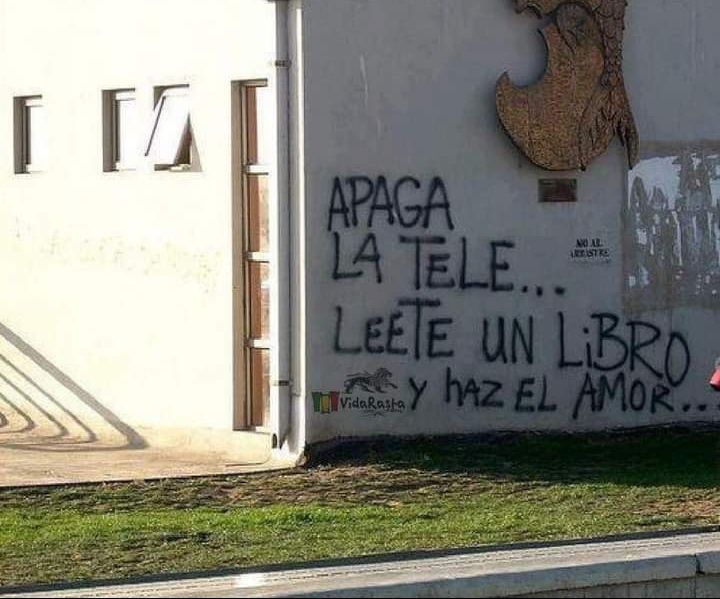 APAGA
LA TELE...
LEETE UN LiBRO
Y HAZ EL AMOR...
NO AL
ARRASTRE
VidaRasta